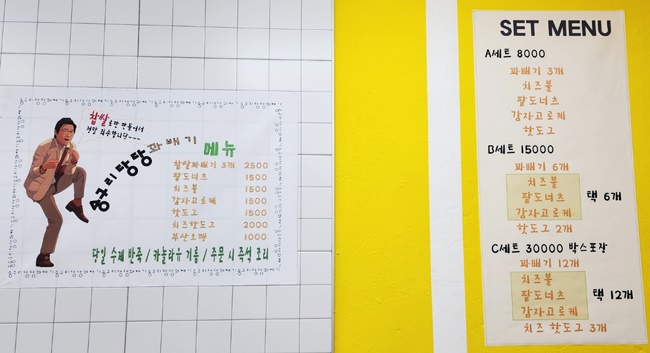 찹쌀로만 만들어서
정말 최수합니다~~~
꽈배기
메뉴
찹쌀꽈배기 3개 2500
팥도너츠 1500
치즈볼 1500
감자고로케 1500
핫도그 1500
치즈핫도그 2000
부산오뎅 1000
당일 수제 반죽 / 카놀라유 기름 / 주문 시 즉석 조리
SET MENU
A세트 8000
꽈배기 3개
치즈볼
팥도너츠
감자고로케
핫도그
B세트 15000
꽈배기 6개
치즈볼
팥도너츠 택 6개
감자고로케
핫도그 2개
C세트 30000 박스포장
꽈배기 12개
치즈볼
팥도너츠 택 12개
감자고로케
치즈 핫도그 3개